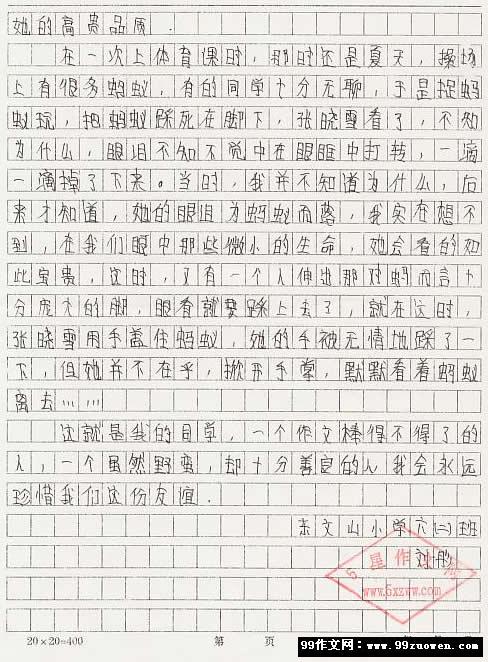 她的高贵品质.
在一次上体育课时,那时还是夏天,操场
上有很多蚂蚁,有的同学十分无聊,于是捉蚂
蚁玩,把蚂蚁踩死在脚下,张晓雪看了,不知
为什么,眼泪不知不觉中在眼眶中打转,一滴
一滴掉了下来。当时,我并不知道为什么,后
来才知道,她的眼泪为蚂蚁而落,我实在想不
到,在我们眼中那些微小的生命,她会看的如
此宝贵,这时,又有一个人伸出那对蚂而言十
分庞大的脚,眼看就要踩上去了,就在这时,
张晓雪用手盖住蚂蚁,她的手被无情地踩了一
下,但她并不在乎,掀开手掌,默默看着蚂蚁
离去……
这就是我的同学,一个作文棒得不得了的
人,一个虽然野蛮,却十分善良的人我会永远
珍惜我们这份友谊.
东文山小学六(二)班
刘彤
5星作文网
www.5xzww.com
20×20=400 第 页
99作文网:www.99zuowen.net